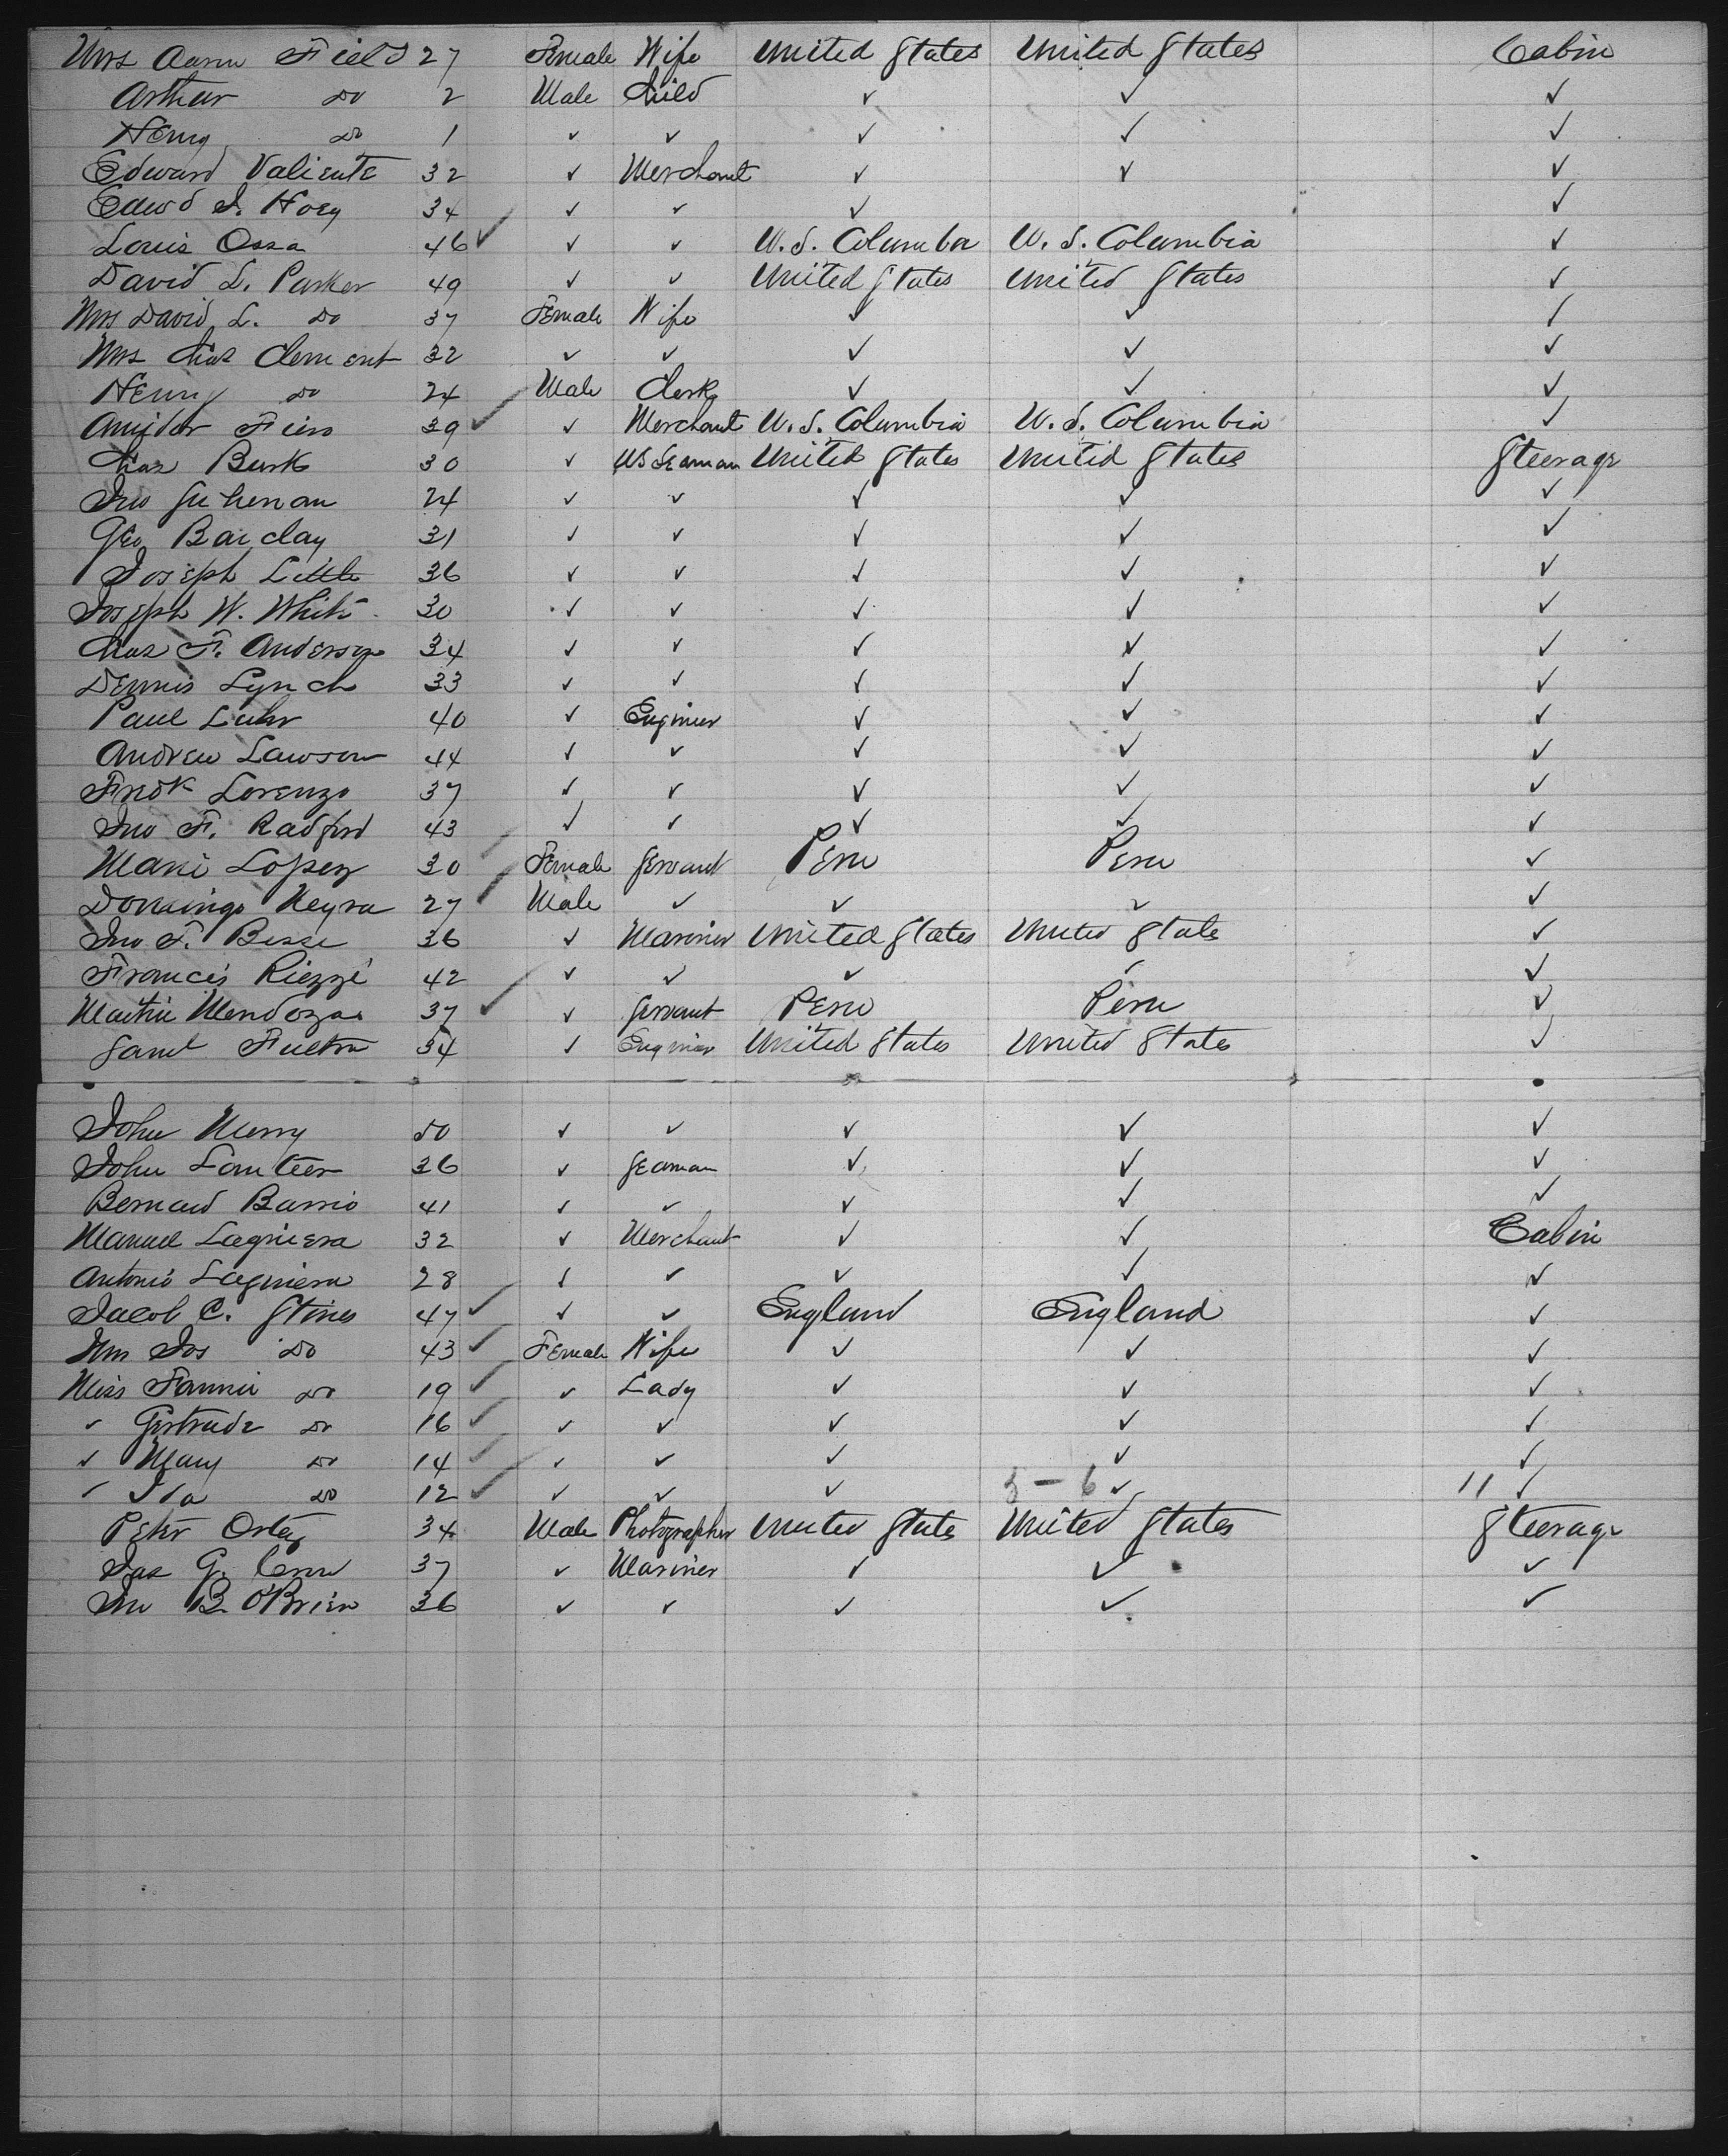 Mrs Aaron Field 27 Female Wife United States United States Cabin
Arthur Do 2 Male Child ✓ ✓ ✓
Henry Do 1 ✓ ✓ ✓ ✓ ✓
Edward Valiente 32 ✓ Merchant ✓ ✓ ✓
Edwd J. Hoey 34 ✓ ✓ ✓ ✓
Louis Ossa 46 ✓ ✓ ✓ U.S. Columbia U.S. Columbia ✓
David L. Parker 49 ✓ ✓ United States United States ✓
Mrs David L. Do 37 Female Wife ✓ ✓ ✓
Mrs Chas Clement 32 ✓ ✓ ✓ ✓ ✓
Henry Do 24 Male Clerk ✓ ✓ ✓
Fiero 39 ✓ ✓ Merchant U.S. Columbia U.S. Columbia ✓
Chas Burk 30 ✓ US Seaman United States United States Steerage
Jno 24 ✓ ✓ ✓ ✓ ✓
Geo Barclay 31 ✓ ✓ ✓ ✓ ✓
Joseph Little 36 ✓ ✓ ✓ ✓ ✓
Joseph W. White 30 ✓ ✓ ✓ ✓ ✓
Chas F. Anderson 34 ✓ ✓ ✓ ✓ ✓
Dennis Lynch 33 ✓ ✓ ✓ ✓ ✓
Paul Luhr 40 ✓ Engineer ✓ ✓ ✓
Andrew Lawson 44 ✓ ✓ ✓ ✓ ✓
Fredk Lorenzo 37 ✓ ✓ ✓ ✓ ✓
Jno F. Radford 43 ✓ ✓ ✓ ✓ ✓
Marie Lopez 30 ✓ Female Servant Peru Peru ✓
Domingo Neyra 27 ✓ Male ✓ ✓ ✓ ✓
Jno F. Besse 36 ✓ Mariner United States United States ✓
Francis Riezzi 42 ✓ ✓ ✓ ✓ ✓
Martin Mendoza 37 ✓ ✓ Servant Peru Peru ✓
Saml Fulton 34 ✓ Engineer United States United States ✓
John Merry 50 ✓ ✓ ✓ ✓ ✓
John Lanteer 36 ✓ Seaman ✓ ✓ ✓
Bernard Barrio 41 ✓ ✓ ✓ ✓ ✓
Manuel Lagruera 32 ✓ Merchant ✓ ✓ Cabin
Antonio 28 ✓ ✓ ✓ ✓ ✓
Jacob C. Stines 47 ✓ ✓ ✓ England England ✓
Do 43 ✓ Female Wife ✓ ✓ ✓
Miss Fannie Do 19 ✓ ✓ Lady ✓ ✓ ✓
✓ Gertrude Do 16 ✓ ✓ ✓ ✓ ✓ ✓
✓ Mary Do 14 ✓ ✓ ✓ ✓ ✓ ✓
✓ Ida Do 12 ✓ ✓ ✓ ✓ 5-6 ✓ 11 ✓
Peter 34 Male Photographer United States United States Steerage
Jas G. 37 ✓ Mariner ✓ ✓ ✓
Jno B. O'Brien 36 ✓ ✓ ✓ ✓ ✓